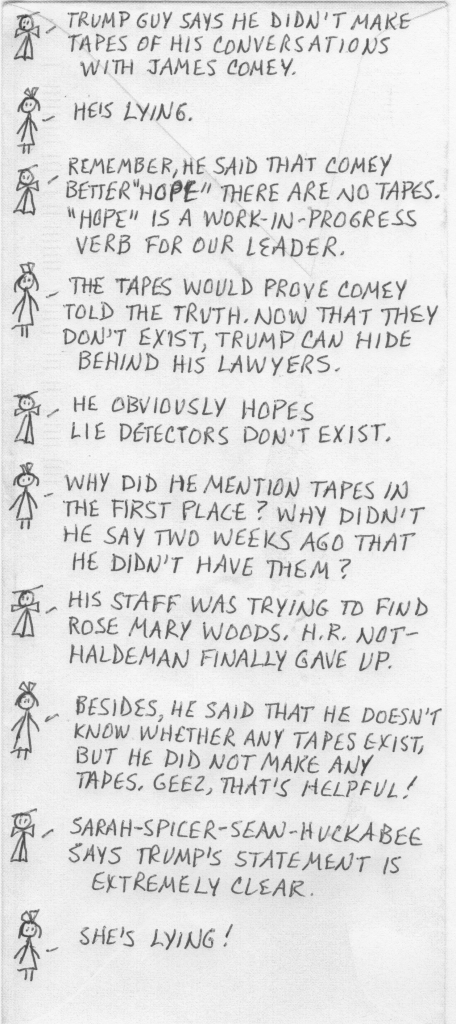 TRUMP GUY SAYS HE DIDN'T MAKE
TAPES OF HIS CONVERSATIONS
WITH JAMES COMEY.
HE'S LYING.
REMEMBER, HE SAID THAT COMEY
BETTER "HOPE" THERE ARE NO TAPES.
"HOPE" IS A WORK-IN-PROGRESS
VERB FOR OUR LEADER.
THE TAPES WOULD PROVE COMEY
TOLD THE TRUTH. NOW THAT THEY
DON'T EXIST, TRUMP CAN HIDE
BEHIND HIS LAWYERS.
HE OBVIOUSLY HOPES
LIE DETECTORS DON'T EXIST.
WHY DID HE MENTION TAPES IN
THE FIRST PLACE? WHY DIDN'T
HE SAY TWO WEEKS AGO THAT
HE DIDN'T HAVE THEM?
HIS STAFF WAS TRYING TO FIND
ROSE MARY WOODS. H.R. NOT-
HALDEMAN FINALLY GAVE UP.
BESIDES, HE SAID THAT HE DOESN'T
KNOW WHETHER ANY TAPES EXIST,
BUT HE DID NOT MAKE ANY
TAPES. GEEZ, THAT'S HELPFUL!
SARAH-SPICER-SEAN-HUCKABEE
SAYS TRUMP'S STATEMENT IS
EXTREMELY CLEAR.
SHE'S LYING!